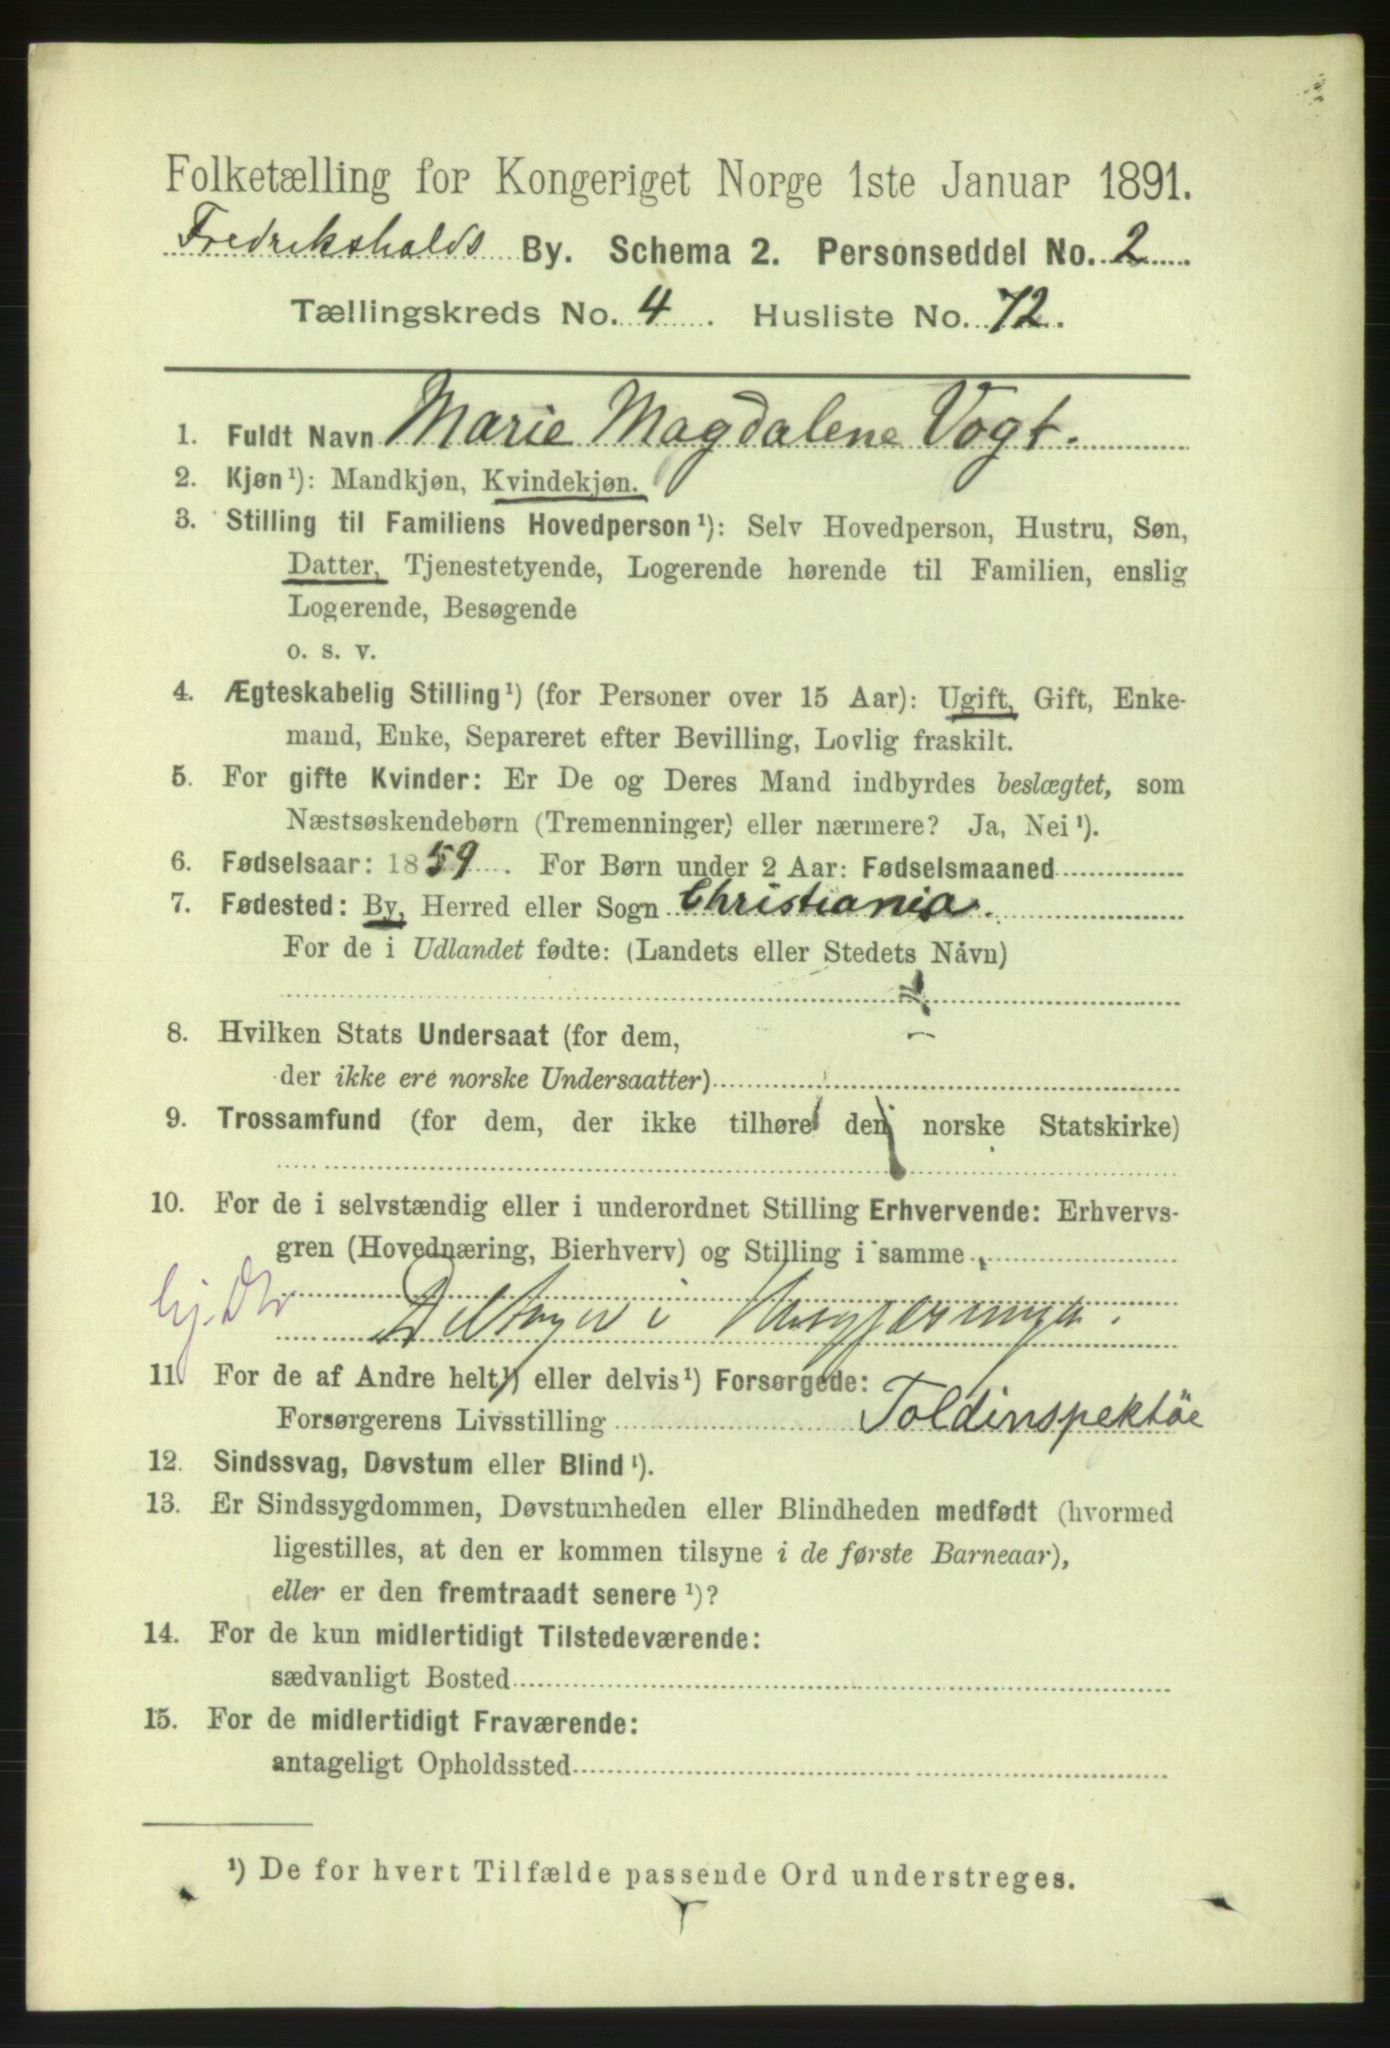 Folketælling for Kongeriget Norge 1ste Januar 1891.
Fredrikshalds By. Schema 2. Personseddel No. 2
Tællingskreds No. 4. Husliste No. 72.
1. Fuldt Navn Marie Magdalene Vogt.
2. Kjøn¹): Mandkjøn, Kvindekjøn.
3. Stilling til Familiens Hovedperson¹): Selv Hovedperson, Hustru, Søn,
Datter, Tjenestetyende, Logerende hørende til Familien, enslig
Logerende, Besøgende
o. s. v.
4. Ægteskabelig Stilling¹) (for Personer over 15 Aar): Ugift, Gift, Enke-
mand, Enke, Separeret efter Bevilling, Lovlig fraskilt.
5. For gifte Kvinder: Er De og Deres Mand indbyrdes beslægtet, som
Næstsøskendebørn (Tremenninger) eller nærmere? Ja, Nei¹).
6. Fødselsaar: 1859. For Børn under 2 Aar: Fødselsmaaned
7. Fødested: By, Herred eller Sogn Christiania.
For de i Udlandet fødte: (Landets eller Stedets Navn)
8. Hvilken Stats Undersaat (for dem,
der ikke ere norske Undersaatter)
9. Trossamfund (for dem, der ikke tilhøre den norske Statskirke)
10. For de i selvstændig eller i underordnet Stilling Erhvervende: Erhvervs-
gren (Hovednæring, Bierhverv) og Stilling i samme
Deltager i Husgjerninga.
11. For de af Andre helt¹) eller delvis¹) Forsørgede:
Forsørgerens Livsstilling Toldinspektör
12. Sindssvag, Døvstum eller Blind¹).
13. Er Sindssygdommen, Døvstumheden eller Blindheden medfødt (hvormed
ligestilles, at den er kommen tilsyne i de første Barneaar),
eller er den fremtraadt senere¹)?
14. For de kun midlertidigt Tilstedeværende:
sædvanligt Bosted
15. For de midlertidigt Fraværende:
antageligt Opholdssted
¹) De for hvert Tilfælde passende Ord understreges.